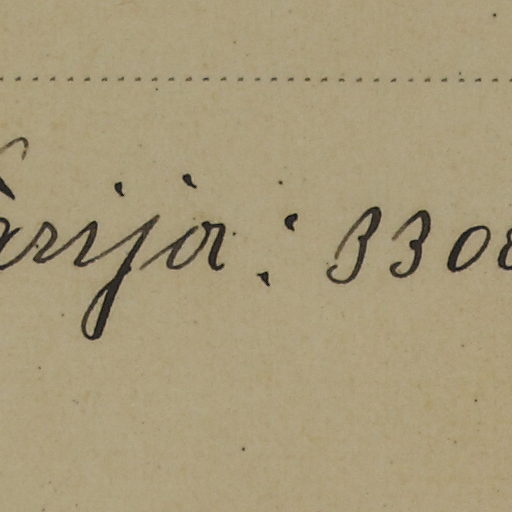 arija: 330